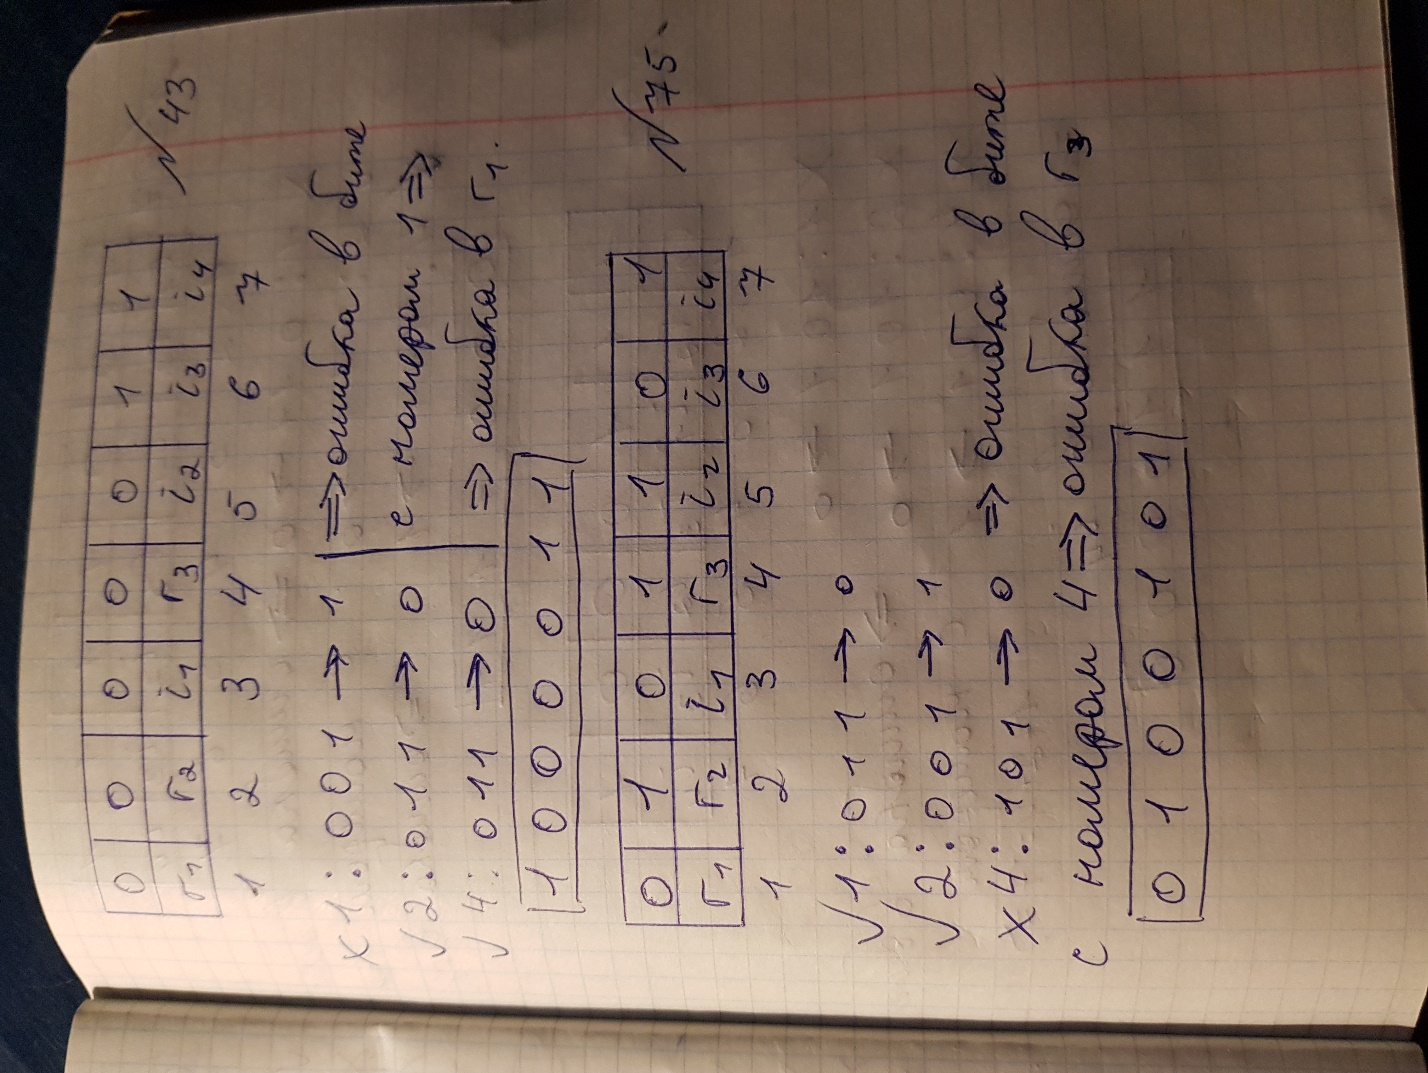 №43
0 0 0 0 0 1 1
r1 r2 i1 r3 i2 i3 i4
1 2 3 4 5 6 7
X 1: 001 → 1 ⇒ ошибка в бите
√ 2: 011 → 0 с номером 1 ⇒
√ 4: 011 → 0 ⇒ ошибка в r1.
1 0 0 0 0 1 1
№75
0 1 0 1 1 0 1
r1 r2 i1 r3 i2 i3 i4
1 2 3 4 5 6 7
√ 1: 011 → 0
√ 2: 001 → 1
X 4: 101 → 0 ⇒ ошибка в бите
с номером 4 ⇒ ошибка в r3
0 1 0 0 1 0 1